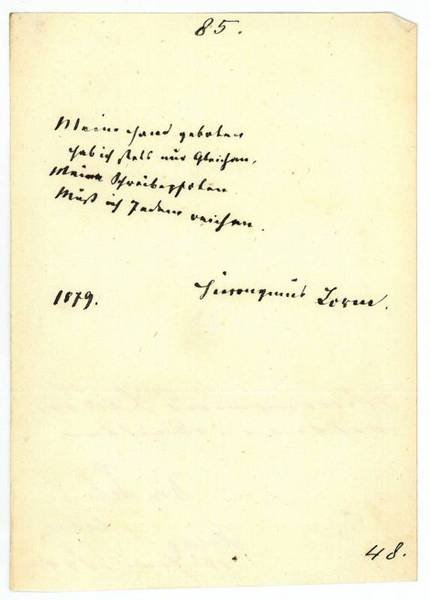 85.
Meine Hand geboten
Hab ich stets nur Gleichen,
Meine Schreibepfoten
Muß ich Jedem reichen.
1879.
Hieronymus Lorm.
48.